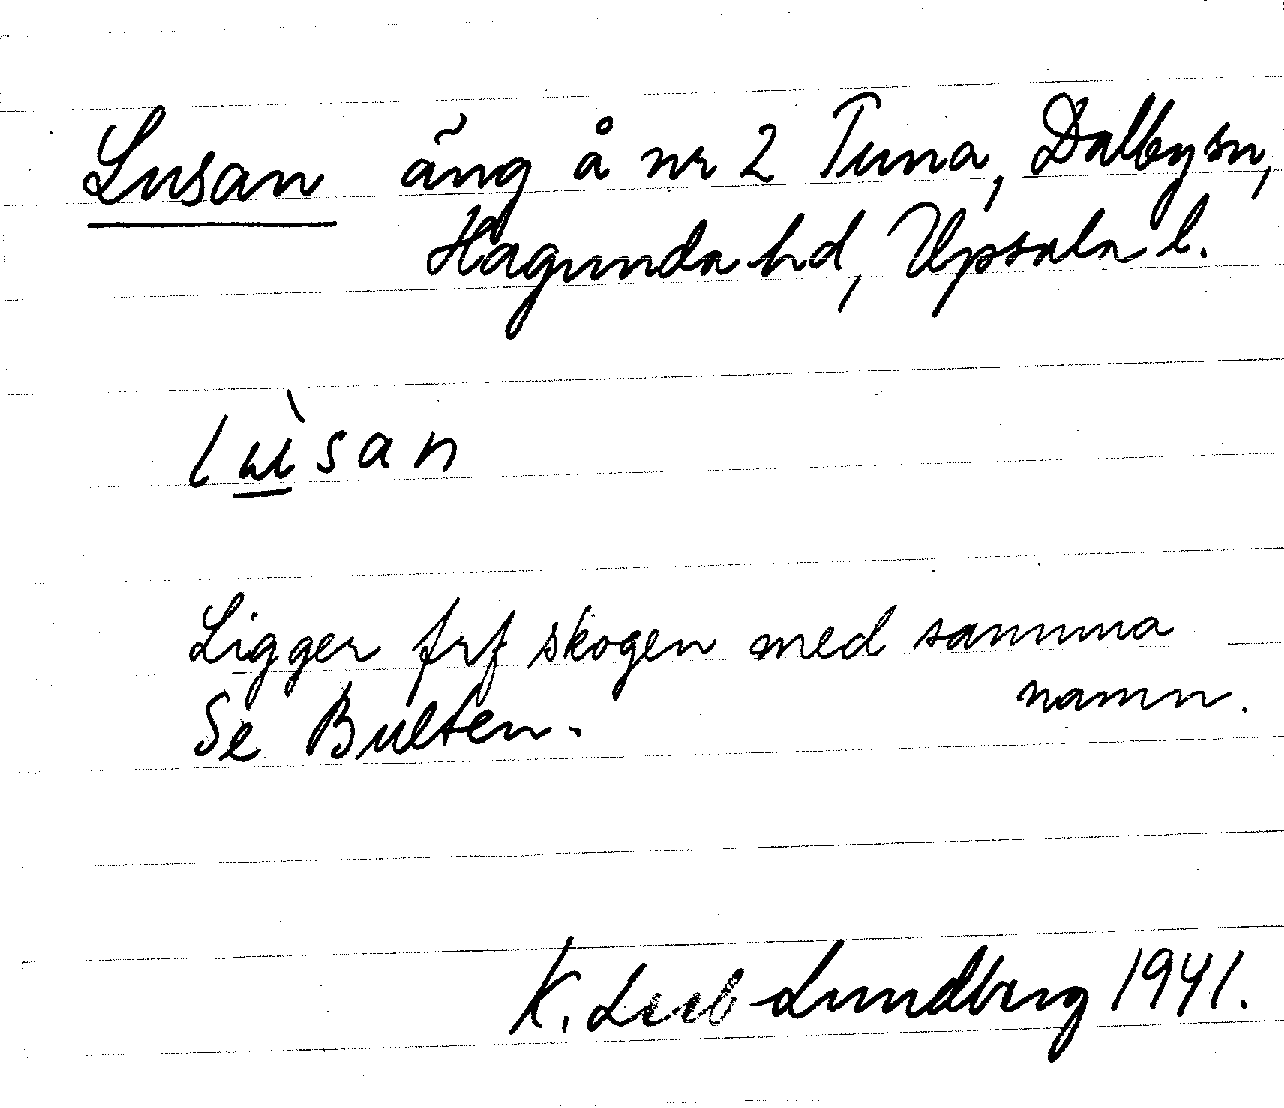 Lusan äng å nr 2 Tuna, Dalby sn,
Hagunda hd, Upsala l.
lùsan
Ligger frf skogen med samma
namn.
Se Bulten.
K. Leeb-Lundberg 1941.